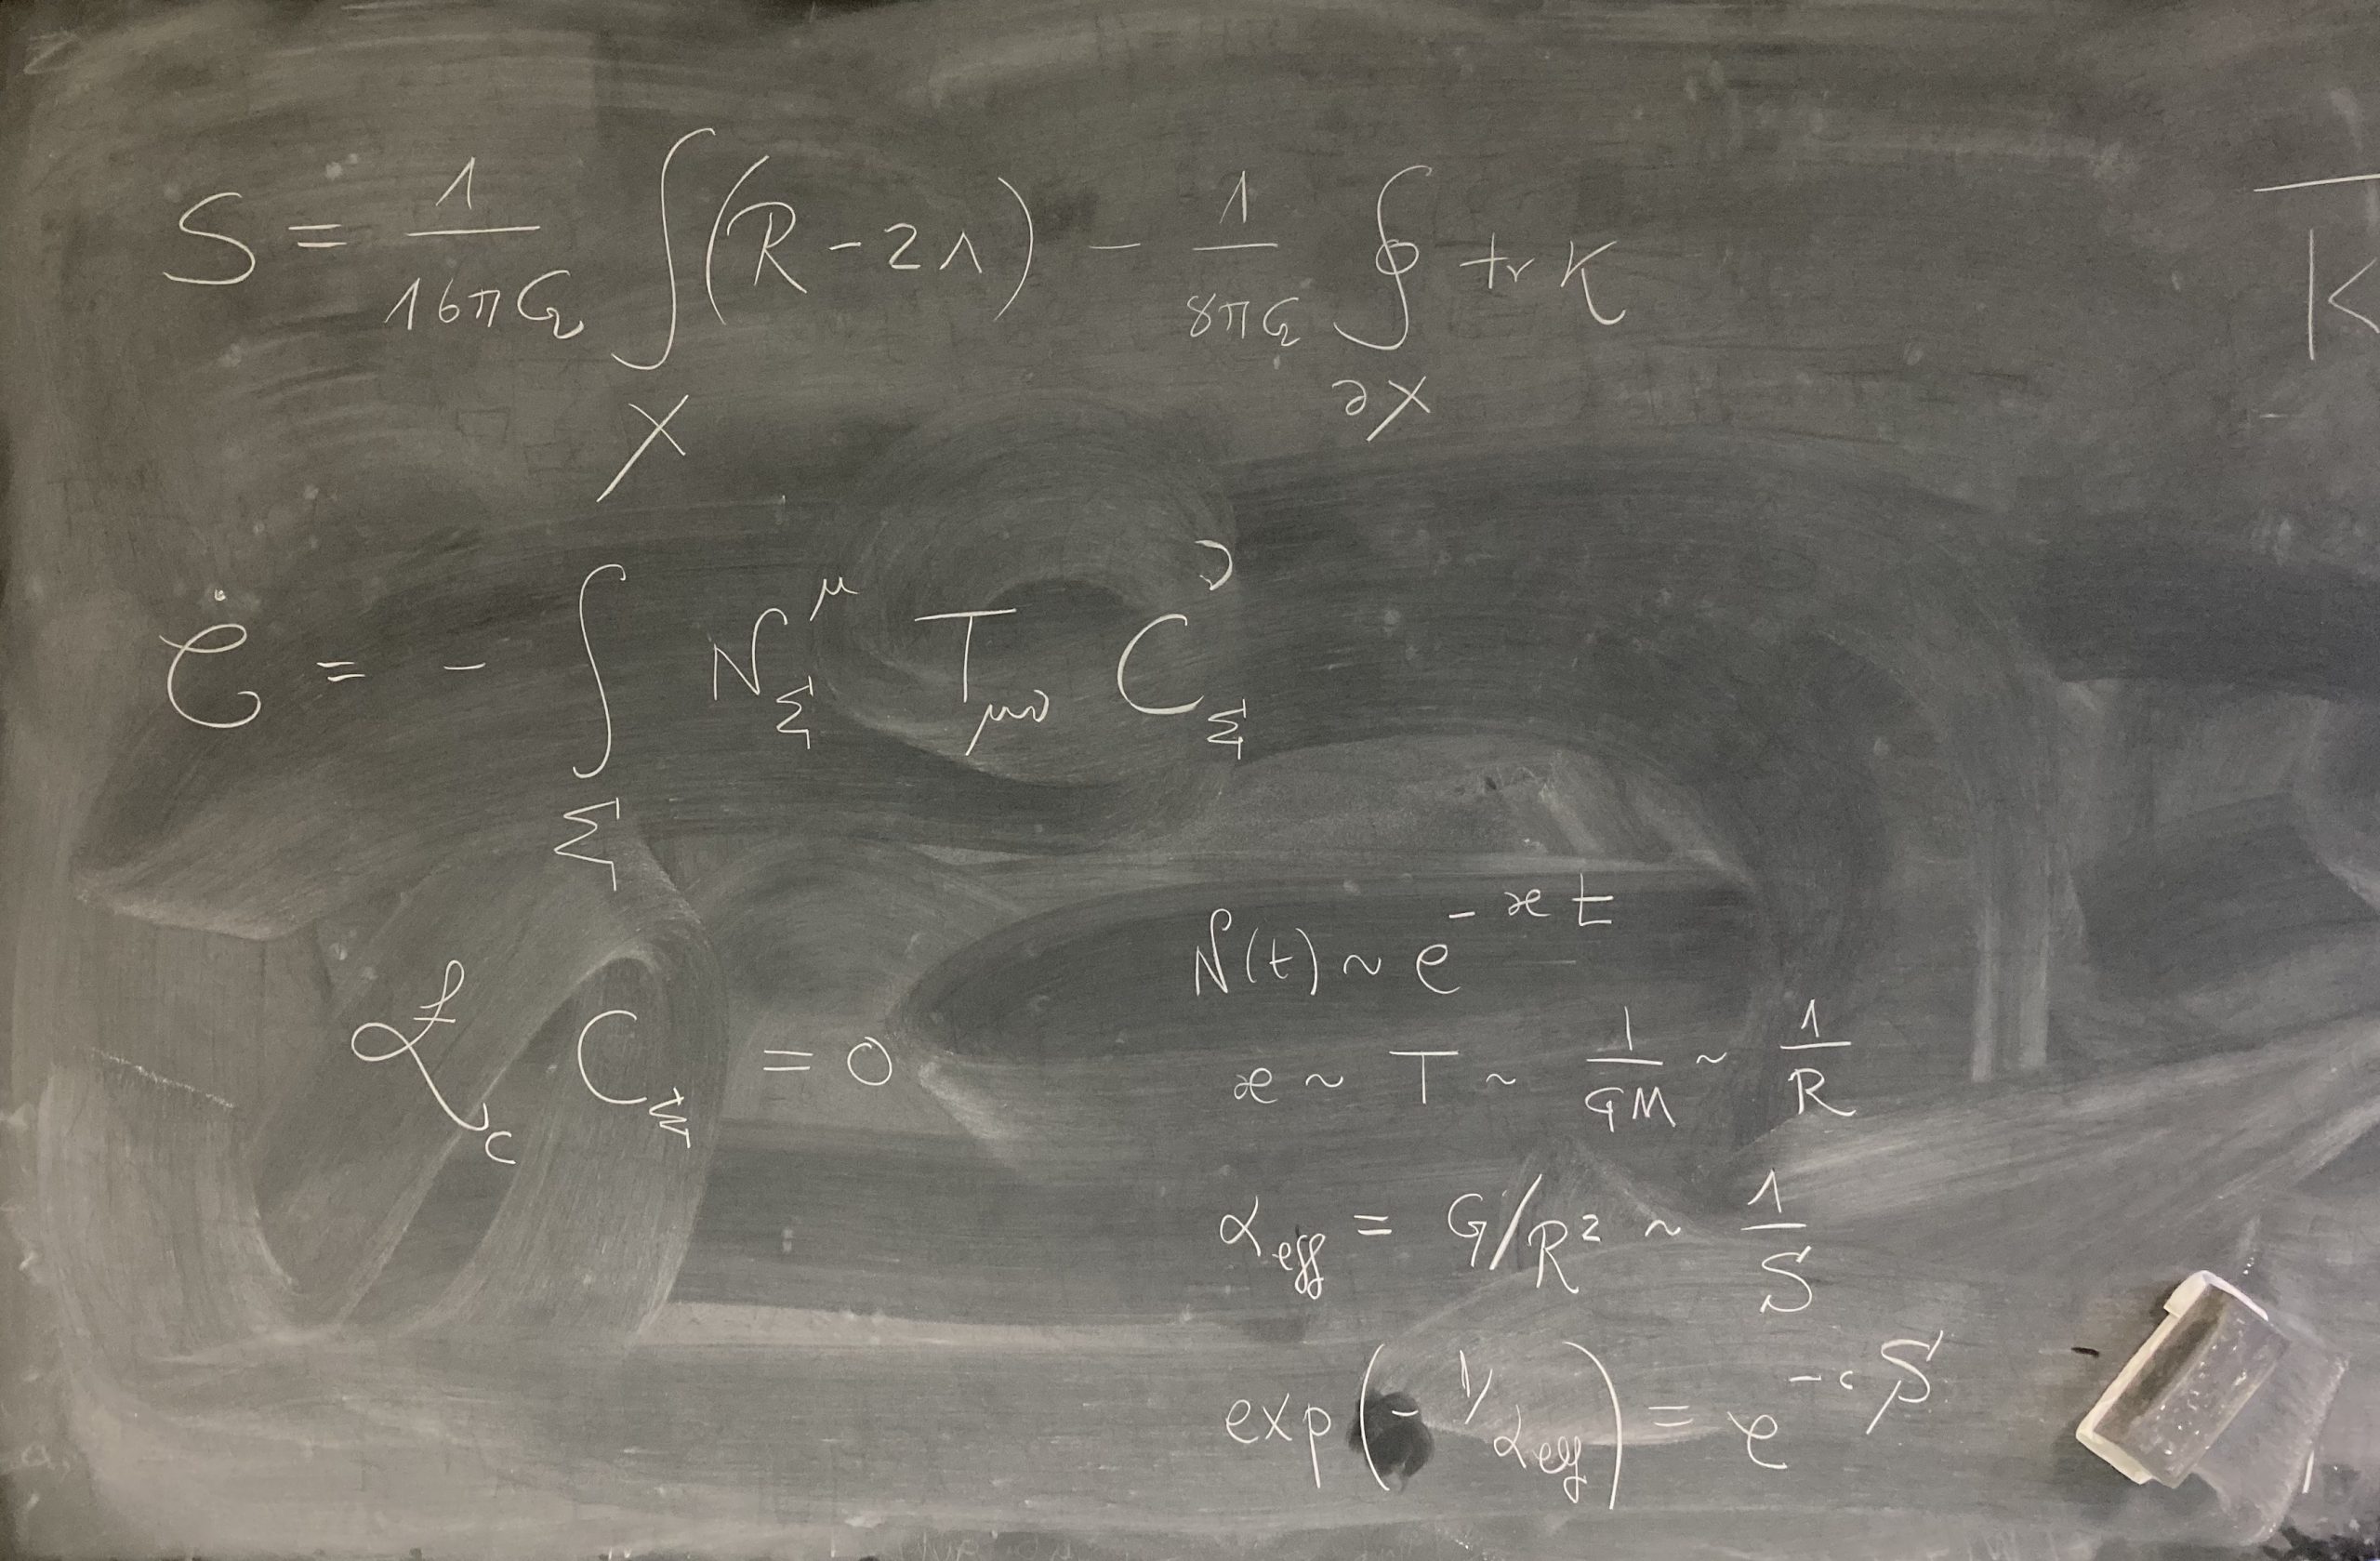 S = 1/16πG ∫_X (R - 2Λ) - 1/8πG ∮_∂X tr K
Ċ = - ∫_Σ N_Σ^μ T_μν C_Σ^ν
ℒ_c C_Σ = 0
N(t) ~ e^(-æt)
æ ~ T ~ 1/GM ~ 1/R
α_eff = G/R² ~ 1/S
exp(- 1/α_eff) = e^(-cS)